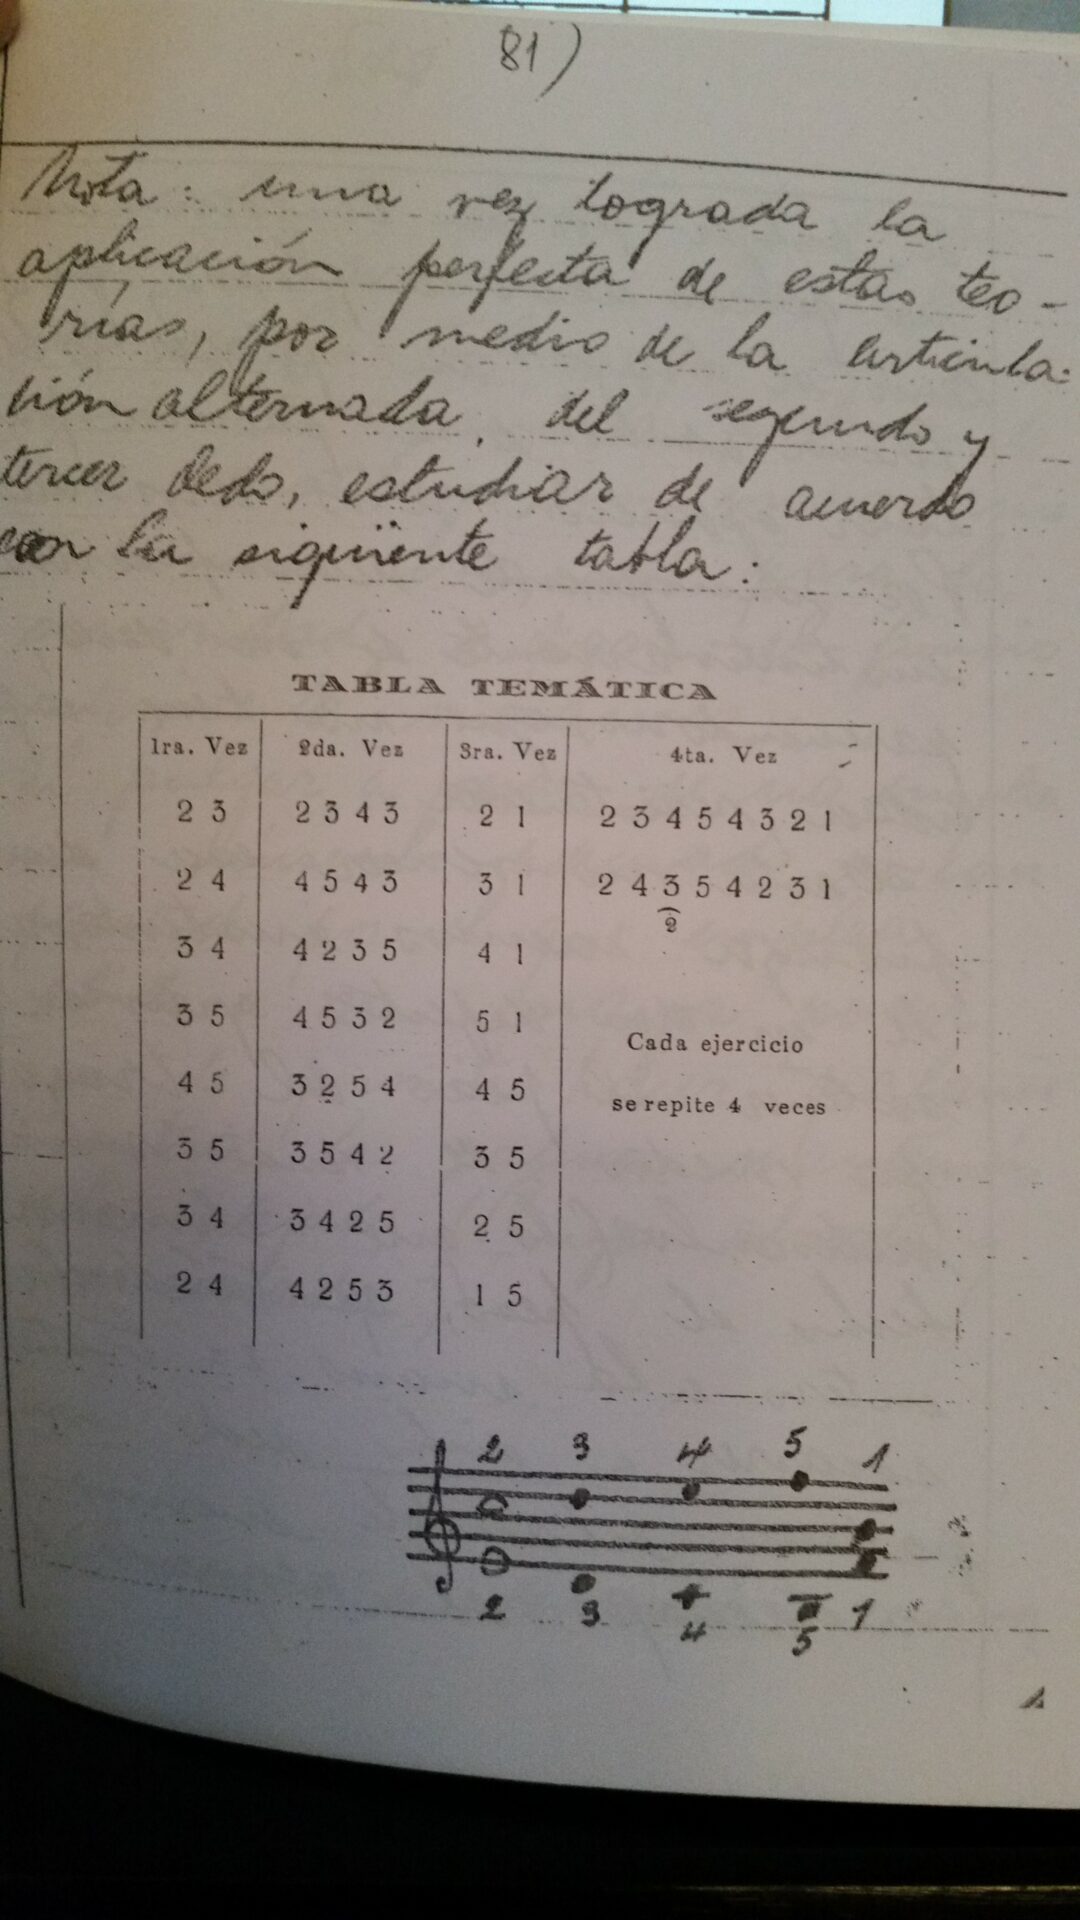 81)
Nota: una vez lograda la
aplicación perfecta de estas teo-
rías, por medio de la articula-
ción alternada del segundo y
tercer dedo, estudiar de acuerdo
con la siguiente tabla:
TABLA TEMÁTICA
1ra. Vez 2da. Vez 3ra. Vez 4ta. Vez
2 3 2 3 4 3 2 1 2 3 4 5 4 3 2 1
2 4 4 5 4 3 3 1 2 4 3 5 4 2 3 1
2
3 4 4 2 3 5 4 1
3 5 4 5 3 2 5 1
Cada ejercicio
4 5 3 2 5 4 4 5
se repite 4 veces
3 5 3 5 4 2 3 5
3 4 3 4 2 5 2 5
2 4 4 2 5 3 1 5
2 3 4 5 1
2 3 4 5 1